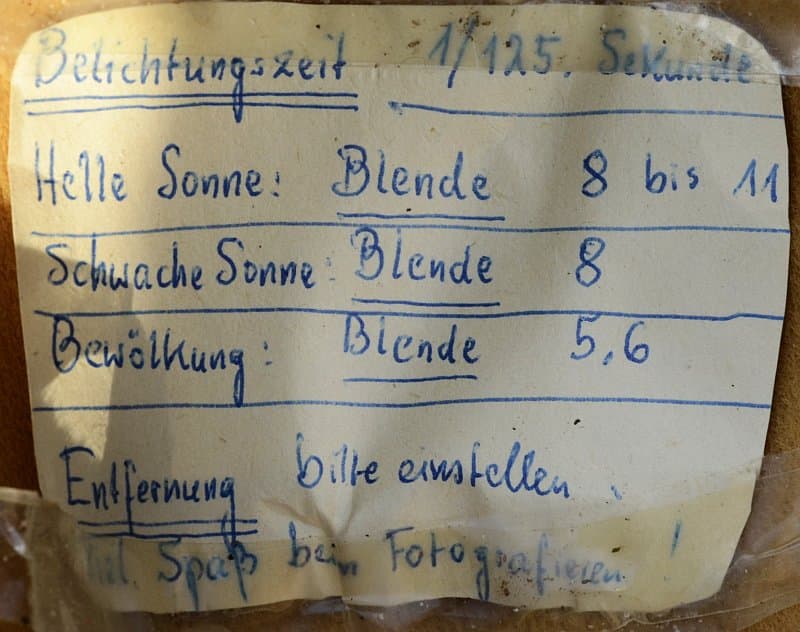 Belichtungszeit 1/125. Sekunde
Helle Sonne: Blende 8 bis 11
Schwache Sonne: Blende 8
Bewölkung: Blende 5,6
Entfernung bitte einstellen.
Spaß beim Fotografieren!